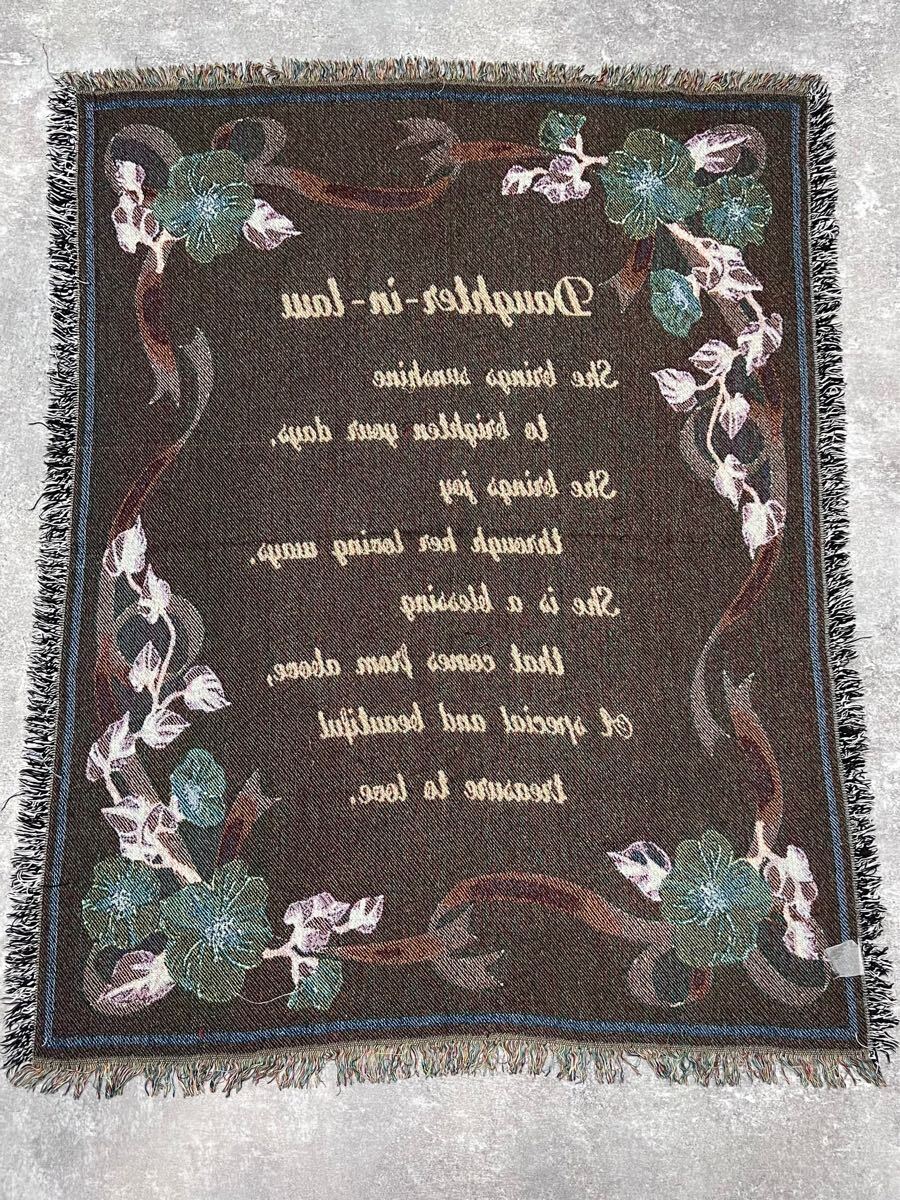 Daughter-in-law
She brings sunshine
to brighten your days,
She brings joy
through her loving ways,
She is a blessing
that comes from above,
A special and beautiful
treasure to love.